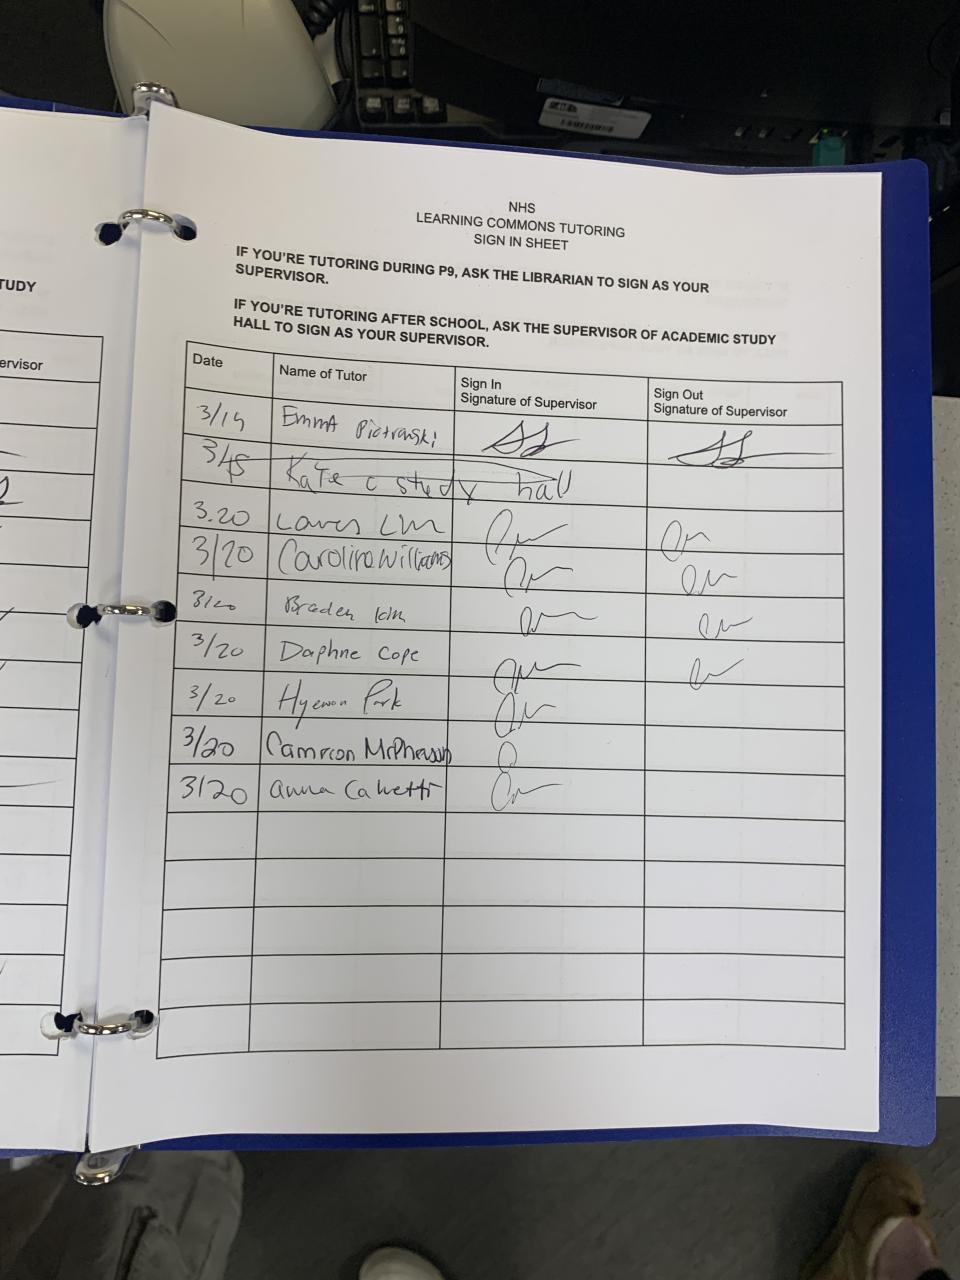 TUDY
ervisor
NHS
LEARNING COMMONS TUTORING
SIGN IN SHEET
IF YOU'RE TUTORING DURING P9, ASK THE LIBRARIAN TO SIGN AS YOUR
SUPERVISOR.
IF YOU'RE TUTORING AFTER SCHOOL, ASK THE SUPERVISOR OF ACADEMIC STUDY
HALL TO SIGN AS YOUR SUPERVISOR.
Date Name of Tutor Sign In Signature of Supervisor Sign Out Signature of Supervisor
3/19 Emma Piotrowski
Kate c study hall
3.20
3/20 Carolina Williams
3/20 Braden Kim
3/20 Daphne Cope
3/20 Hyewon Park
3/20 Camrcon McPherson
3/20 anna Calvetti